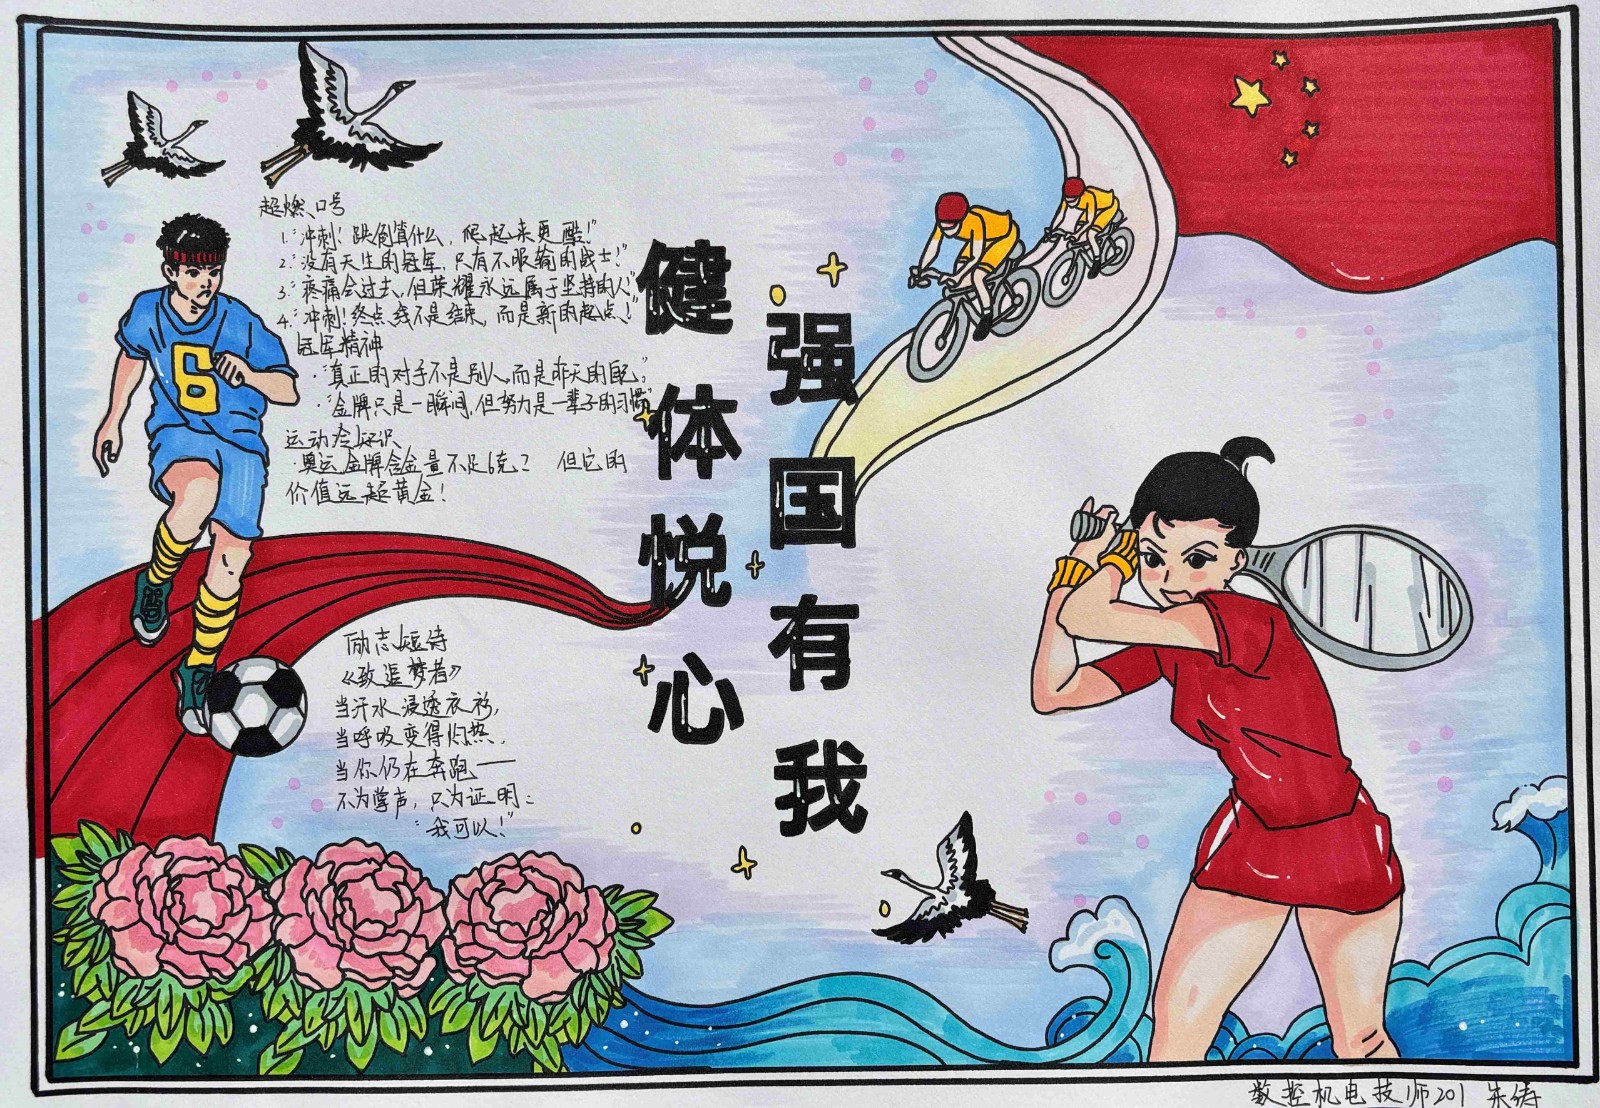 超燃口号
1."冲刺!跌倒算什么,爬起来更酷!"
2."没有天生的冠军,只有不服输的战士!"
3."疼痛会过去,但荣耀永远属于坚持的人"
4."冲刺!终点线不是结束,而是新的起点!"
冠军精神
·"真正的对手不是别人,而是昨天的自己。"
·"金牌只是一瞬间,但努力是一辈子的习惯"
运动会知识
·奥运金牌含金量不足6克? 但它的
价值远超黄金!
健体悦心
强国有我
6
励志短诗
《致追梦者》
当汗水浸透衣衫,
当呼吸变得灼热,
当你仍在奔跑——
不为掌声,只为证明:
"我可以!"
数控机电技师201 朱铸